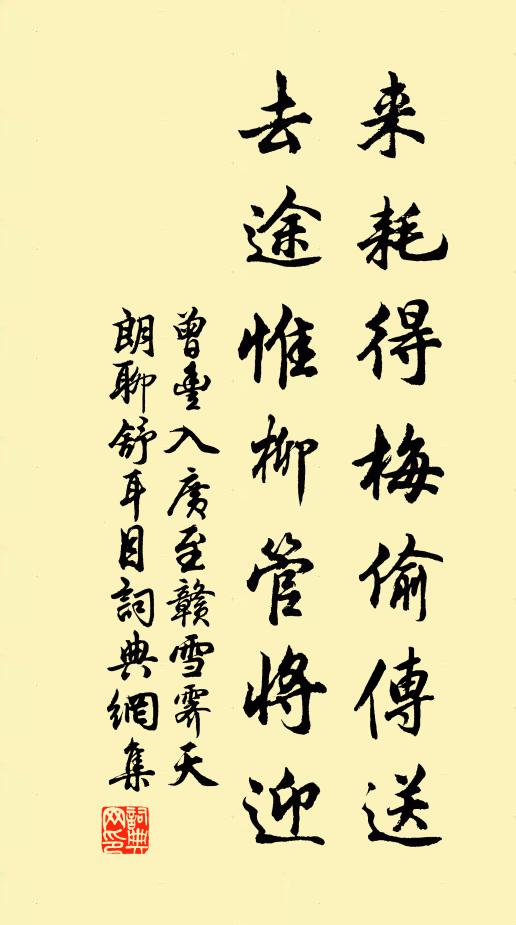 来耗得梅偷傳送
去途惟柳管將迎
曾豐入廣至贛雪霽天
朗聊舒耳目詞典網集
詞典網印